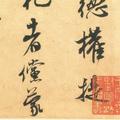 德權捷
者儻蒙